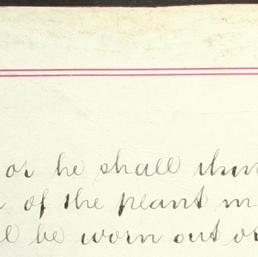 or he shall thin
of the plant m
be worn out or